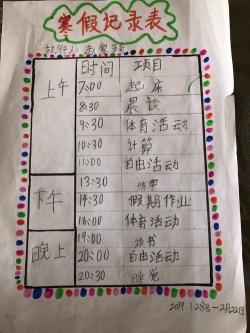 寒假记录表
执行人
时间 项目
上午 7:00 起床
8:30 晨读
9:30 体育活动
10:30 计算
11:00 自由活动
下午 13:30
14:30 假期作业
16:00 体育活动
晚上 19:00 读书
20:00 自由活动
20:30 睡觉
2019.1.28号—2月22日